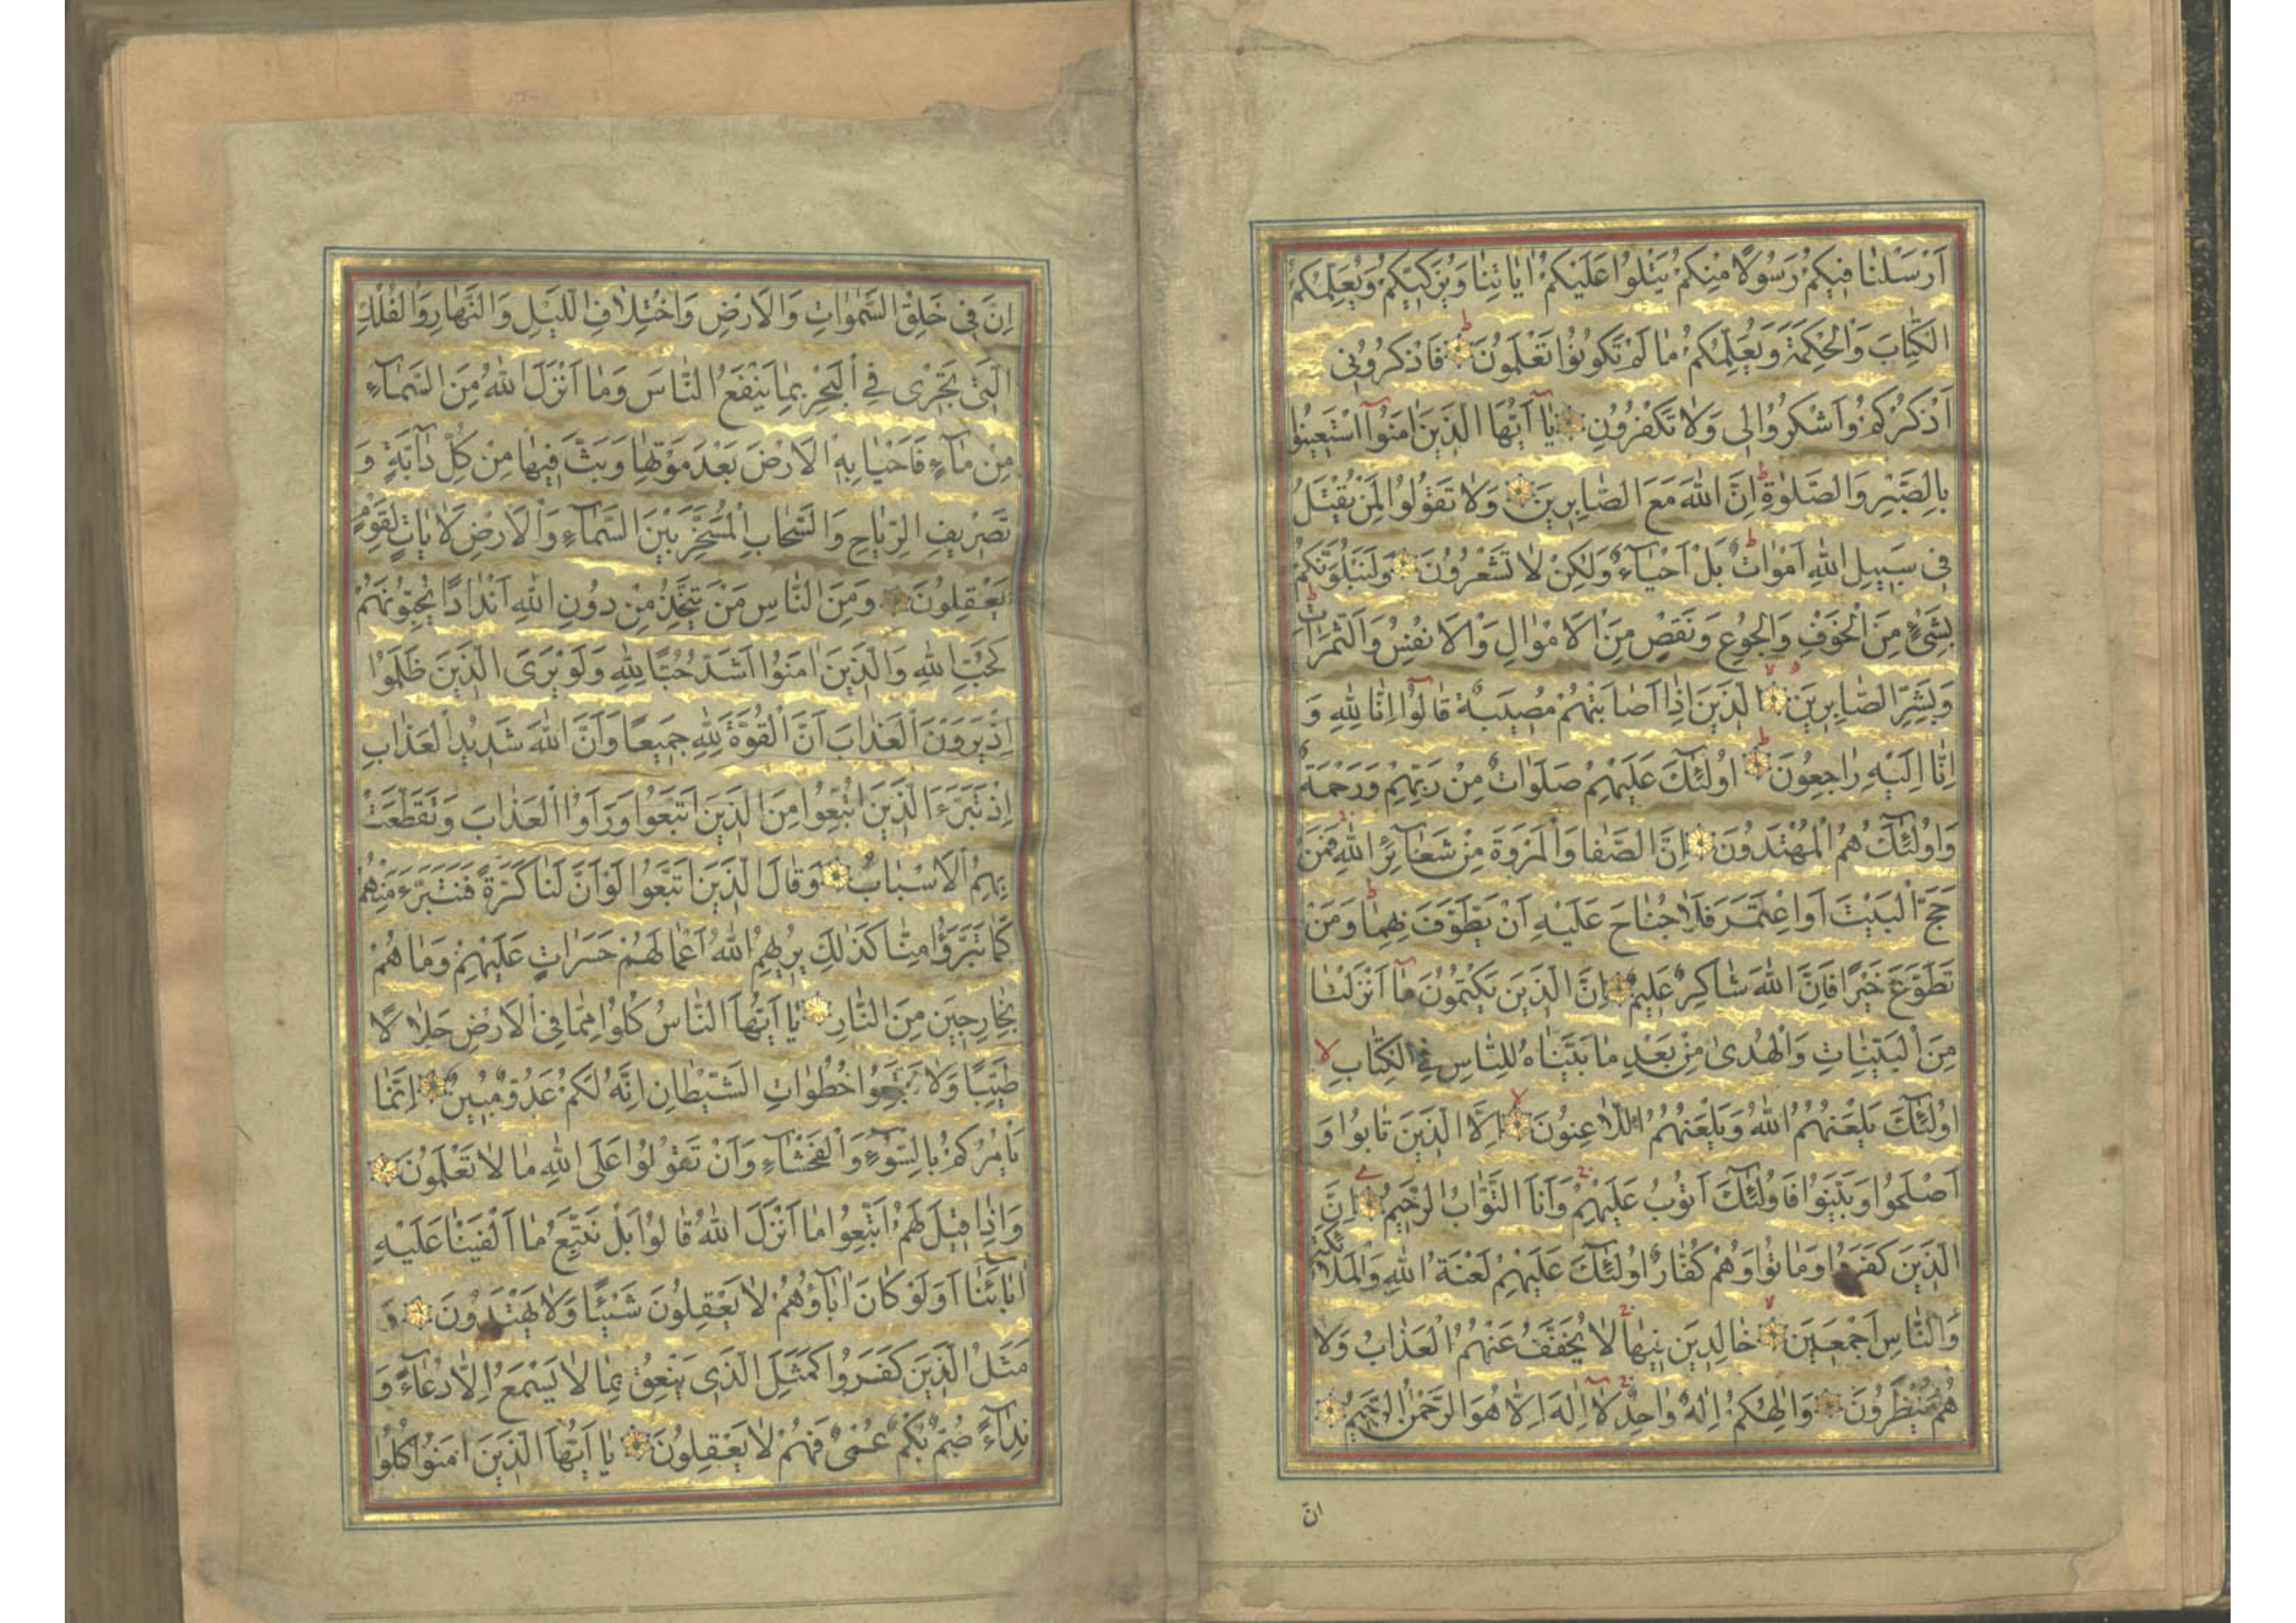 اَرْسَلْنٰا فٖيكُمْ رَسُولًا مِنْكُمْ يَتْلُوا عَلَيْكُمْ اٰيٰاتِنٰا وَيُزَكّٖيكُمْ وَيُعَلِّمُكُمُ
الْكِتٰابَ وَالْحِكْمَةَ وَيُعَلِّمُكُمْ مٰا لَمْ تَكُونُوا تَعْلَمُونَ فَاذْكُرُونٖى
اَذْكُرْكُمْ وَاشْكُرُوا لٖى وَلٰا تَكْفُرُونِ يٰا اَيُّهَا الَّذٖينَ اٰمَنُوا اسْتَعٖينُوا
بِالصَّبْرِ وَالصَّلٰوةِ اِنَّ اللّٰهَ مَعَ الصّٰابِرٖينَ وَلٰا تَقُولُوا لِمَنْ يُقْتَلُ
فٖى سَبٖيلِ اللّٰهِ اَمْوٰاتٌ بَلْ اَحْيٰاءٌ وَلٰكِنْ لٰا تَشْعُرُونَ وَلَنَبْلُوَنَّكُمْ
بِشَىْءٍ مِنَ الْخَوْفِ وَالْجُوعِ وَنَقْصٍ مِنَ الْاَمْوٰالِ وَالْاَنْفُسِ وَالثَّمَرٰاتِ
وَبَشِّرِ الصّٰابِرٖينَ الَّذٖينَ اِذٰا اَصٰابَتْهُمْ مُصٖيبَةٌ قٰالُوا اِنّٰا لِلّٰهِ وَ
اِنّٰا اِلَيْهِ رٰاجِعُونَ اُولٰئِكَ عَلَيْهِمْ صَلَوٰاتٌ مِنْ رَبِّهِمْ وَرَحْمَةٌ
وَاُولٰئِكَ هُمُ الْمُهْتَدُونَ اِنَّ الصَّفٰا وَالْمَرْوَةَ مِنْ شَعٰائِرِ اللّٰهِ فَمَنْ
حَجَّ الْبَيْتَ اَوِ اعْتَمَرَ فَلٰا جُنٰاحَ عَلَيْهِ اَنْ يَطَّوَّفَ بِهِمٰا وَمَنْ
تَطَوَّعَ خَيْرًا فَاِنَّ اللّٰهَ شٰاكِرٌ عَلٖيمٌ اِنَّ الَّذٖينَ يَكْتُمُونَ مٰا اَنْزَلْنٰا
مِنَ الْبَيِّنٰاتِ وَالْهُدٰى مِنْ بَعْدِ مٰا بَيَّنّٰاهُ لِلنّٰاسِ فِى الْكِتٰابِ
اُولٰئِكَ يَلْعَنُهُمُ اللّٰهُ وَيَلْعَنُهُمُ اللّٰاعِنُونَ اِلَّا الَّذٖينَ تٰابُوا وَ
اَصْلَحُوا وَبَيَّنُوا فَاُولٰئِكَ اَتُوبُ عَلَيْهِمْ وَاَنَا التَّوّٰابُ الرَّحٖيمُ اِنَّ
الَّذٖينَ كَفَرُوا وَمٰاتُوا وَهُمْ كُفّٰارٌ اُولٰئِكَ عَلَيْهِمْ لَعْنَةُ اللّٰهِ وَالْمَلٰئِكَةِ
وَالنّٰاسِ اَجْمَعٖينَ خٰالِدٖينَ فٖيهٰا لٰا يُخَفَّفُ عَنْهُمُ الْعَذٰابُ وَلٰا
هُمْ يُنْظَرُونَ وَاِلٰهُكُمْ اِلٰهٌ وٰاحِدٌ لٰا اِلٰهَ اِلّٰا هُوَ الرَّحْمٰنُ الرَّحٖيمُ
انّ
اِنَّ فٖى خَلْقِ السَّمٰوٰاتِ وَالْاَرْضِ وَاخْتِلٰافِ اللَّيْلِ وَالنَّهٰارِ وَالْفُلْكِ
الَّتٖى تَجْرٖى فِى الْبَحْرِ بِمٰا يَنْفَعُ النّٰاسَ وَمٰا اَنْزَلَ اللّٰهُ مِنَ السَّمٰاءِ
مِنْ مٰاءٍ فَاَحْيٰا بِهِ الْاَرْضَ بَعْدَ مَوْتِهٰا وَبَثَّ فٖيهٰا مِنْ كُلِّ دٰابَّةٍ وَ
تَصْرٖيفِ الرِّيٰاحِ وَالسَّحٰابِ الْمُسَخَّرِ بَيْنَ السَّمٰاءِ وَالْاَرْضِ لَاٰيٰاتٍ لِقَوْمٍ
يَعْقِلُونَ وَمِنَ النّٰاسِ مَنْ يَتَّخِذُ مِنْ دُونِ اللّٰهِ اَنْدٰادًا يُحِبُّونَهُمْ
كَحُبِّ اللّٰهِ وَالَّذٖينَ اٰمَنُوا اَشَدُّ حُبًّا لِلّٰهِ وَلَوْ يَرَى الَّذٖينَ ظَلَمُوا
اِذْ يَرَوْنَ الْعَذٰابَ اَنَّ الْقُوَّةَ لِلّٰهِ جَمٖيعًا وَاَنَّ اللّٰهَ شَدٖيدُ الْعَذٰابِ
اِذْ تَبَرَّءَ الَّذٖينَ اتُّبِعُوا مِنَ الَّذٖينَ اتَّبَعُوا وَرَاَوُا الْعَذٰابَ وَتَقَطَّعَتْ
بِهِمُ الْاَسْبٰابُ وَقٰالَ الَّذٖينَ اتَّبَعُوا لَوْ اَنَّ لَنٰا كَرَّةً فَنَتَبَرَّءَ مِنْهُمْ
كَمٰا تَبَرَّؤُا مِنّٰا كَذٰلِكَ يُرٖيهِمُ اللّٰهُ اَعْمٰالَهُمْ حَسَرٰاتٍ عَلَيْهِمْ وَمٰا هُمْ
بِخٰارِجٖينَ مِنَ النّٰارِ يٰا اَيُّهَا النّٰاسُ كُلُوا مِمّٰا فِى الْاَرْضِ حَلٰالًا
طَيِّبًا وَلٰا تَتَّبِعُوا خُطُوٰاتِ الشَّيْطٰانِ اِنَّهُ لَكُمْ عَدُوٌّ مُبٖينٌ اِنَّمٰا
يَاْمُرُكُمْ بِالسُّوءِ وَالْفَحْشٰاءِ وَاَنْ تَقُولُوا عَلَى اللّٰهِ مٰا لٰا تَعْلَمُونَ
وَاِذٰا قٖيلَ لَهُمُ اتَّبِعُوا مٰا اَنْزَلَ اللّٰهُ قٰالُوا بَلْ نَتَّبِعُ مٰا اَلْفَيْنٰا عَلَيْهِ
اٰبٰائَنٰا اَوَلَوْ كٰانَ اٰبٰاؤُهُمْ لٰا يَعْقِلُونَ شَيْئًا وَلٰا يَهْتَدُونَ وَ
مَثَلُ الَّذٖينَ كَفَرُوا كَمَثَلِ الَّذٖى يَنْعِقُ بِمٰا لٰا يَسْمَعُ اِلّٰا دُعٰاءً وَ
نِدٰاءً صُمٌّ بُكْمٌ عُمْىٌ فَهُمْ لٰا يَعْقِلُونَ يٰا اَيُّهَا الَّذٖينَ اٰمَنُوا كُلُوا